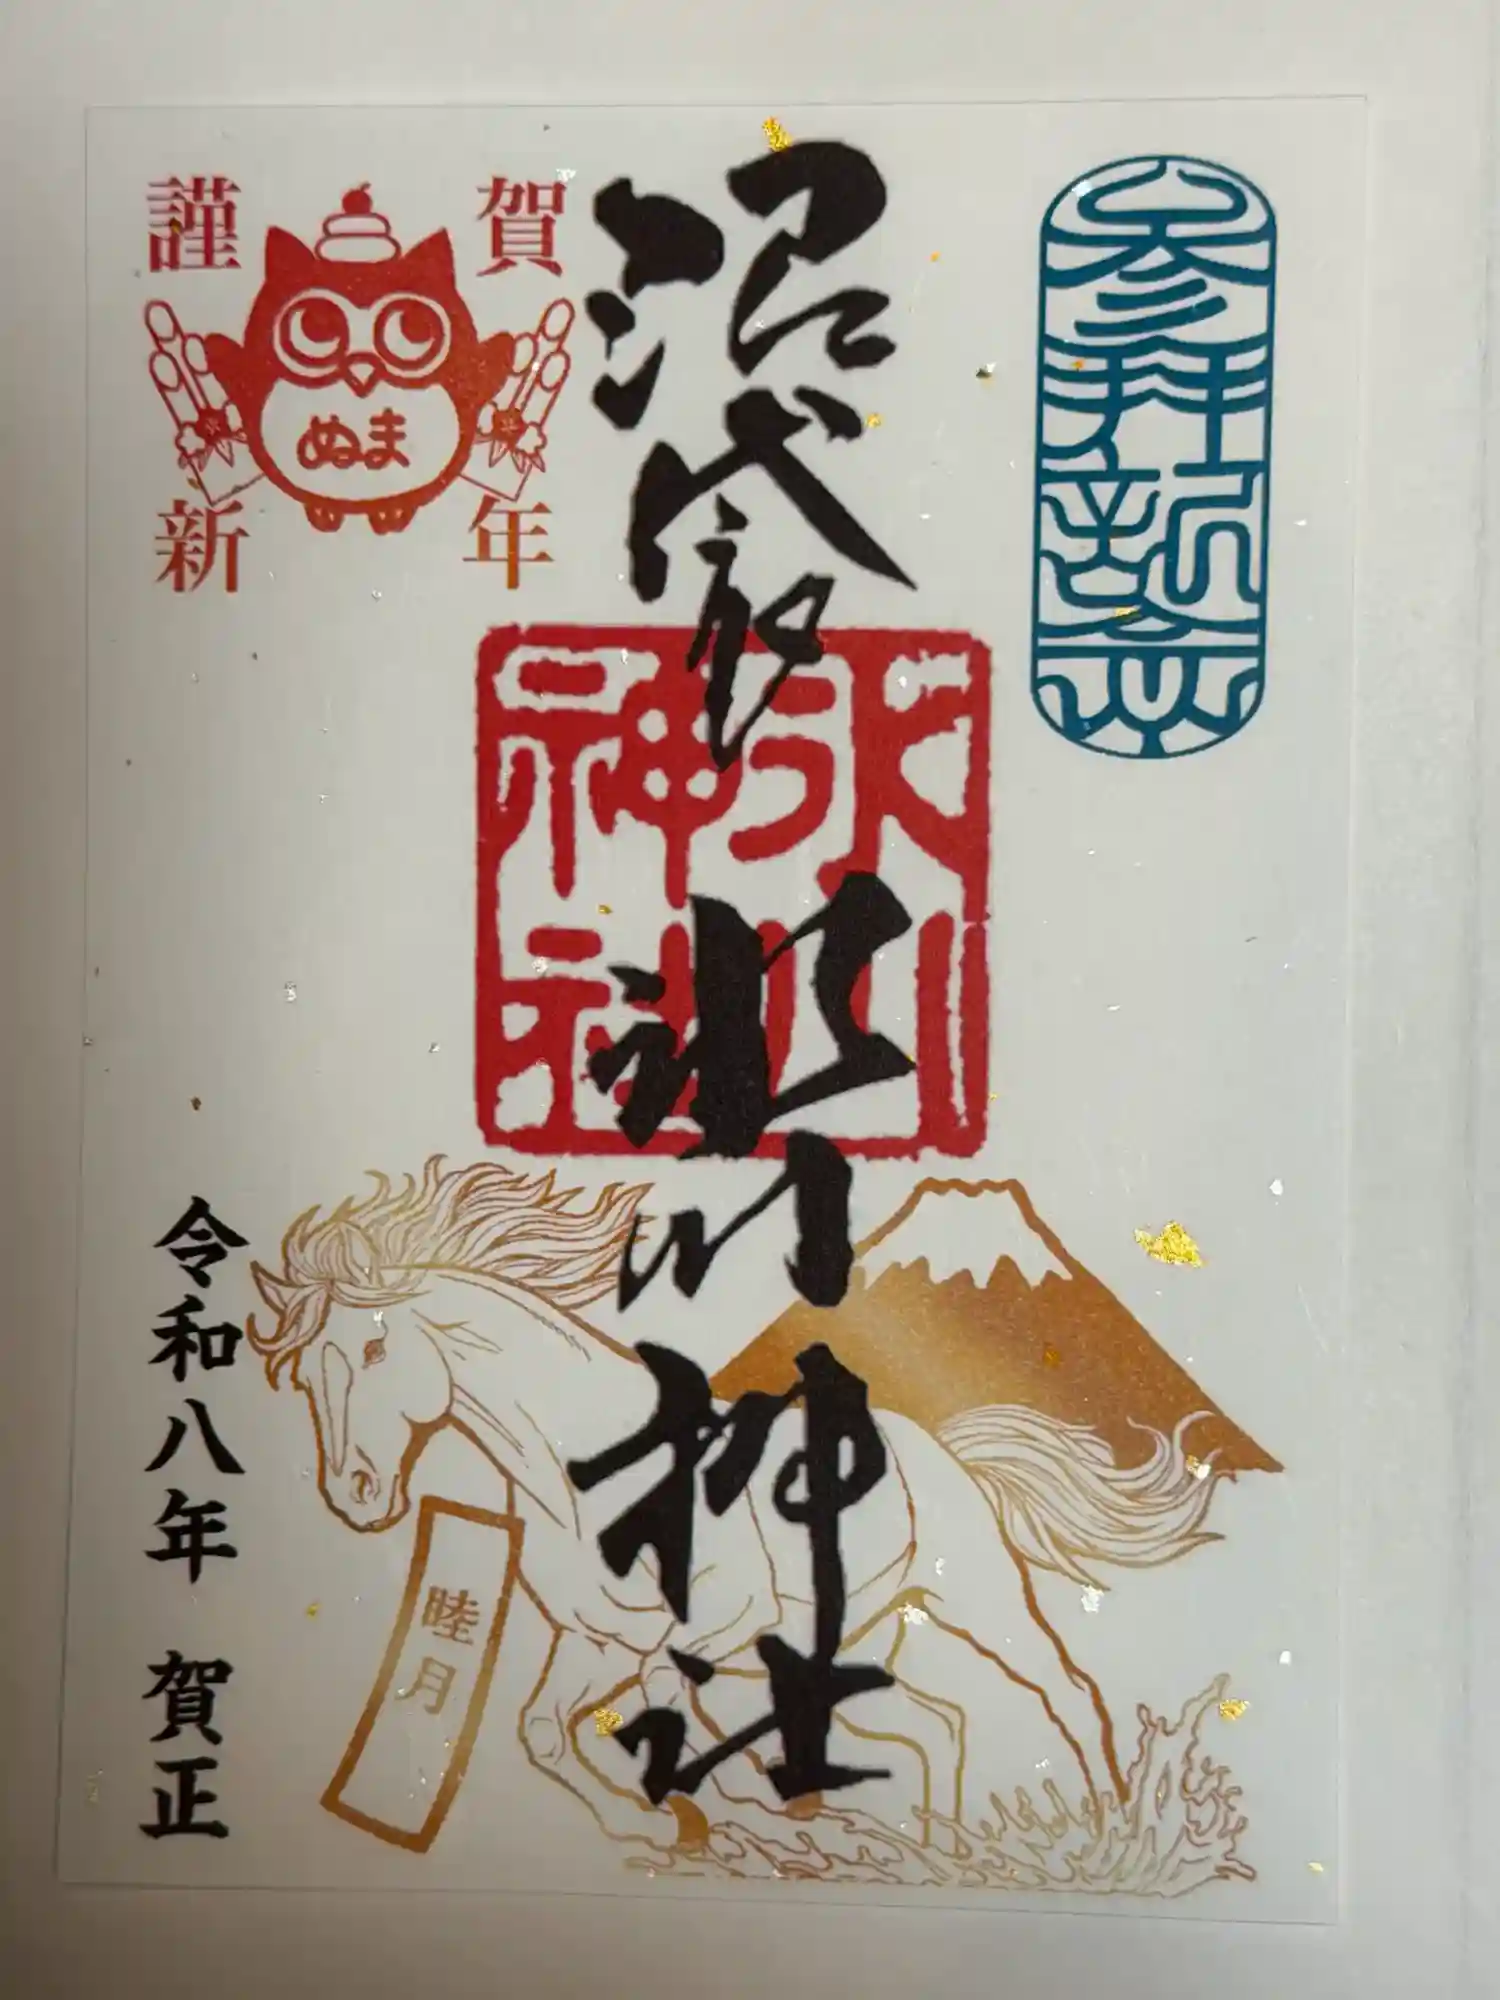 参拝記念
沼袋氷川神社
氷川神社
謹賀新年
ぬま
睦月
令和八年 賀正